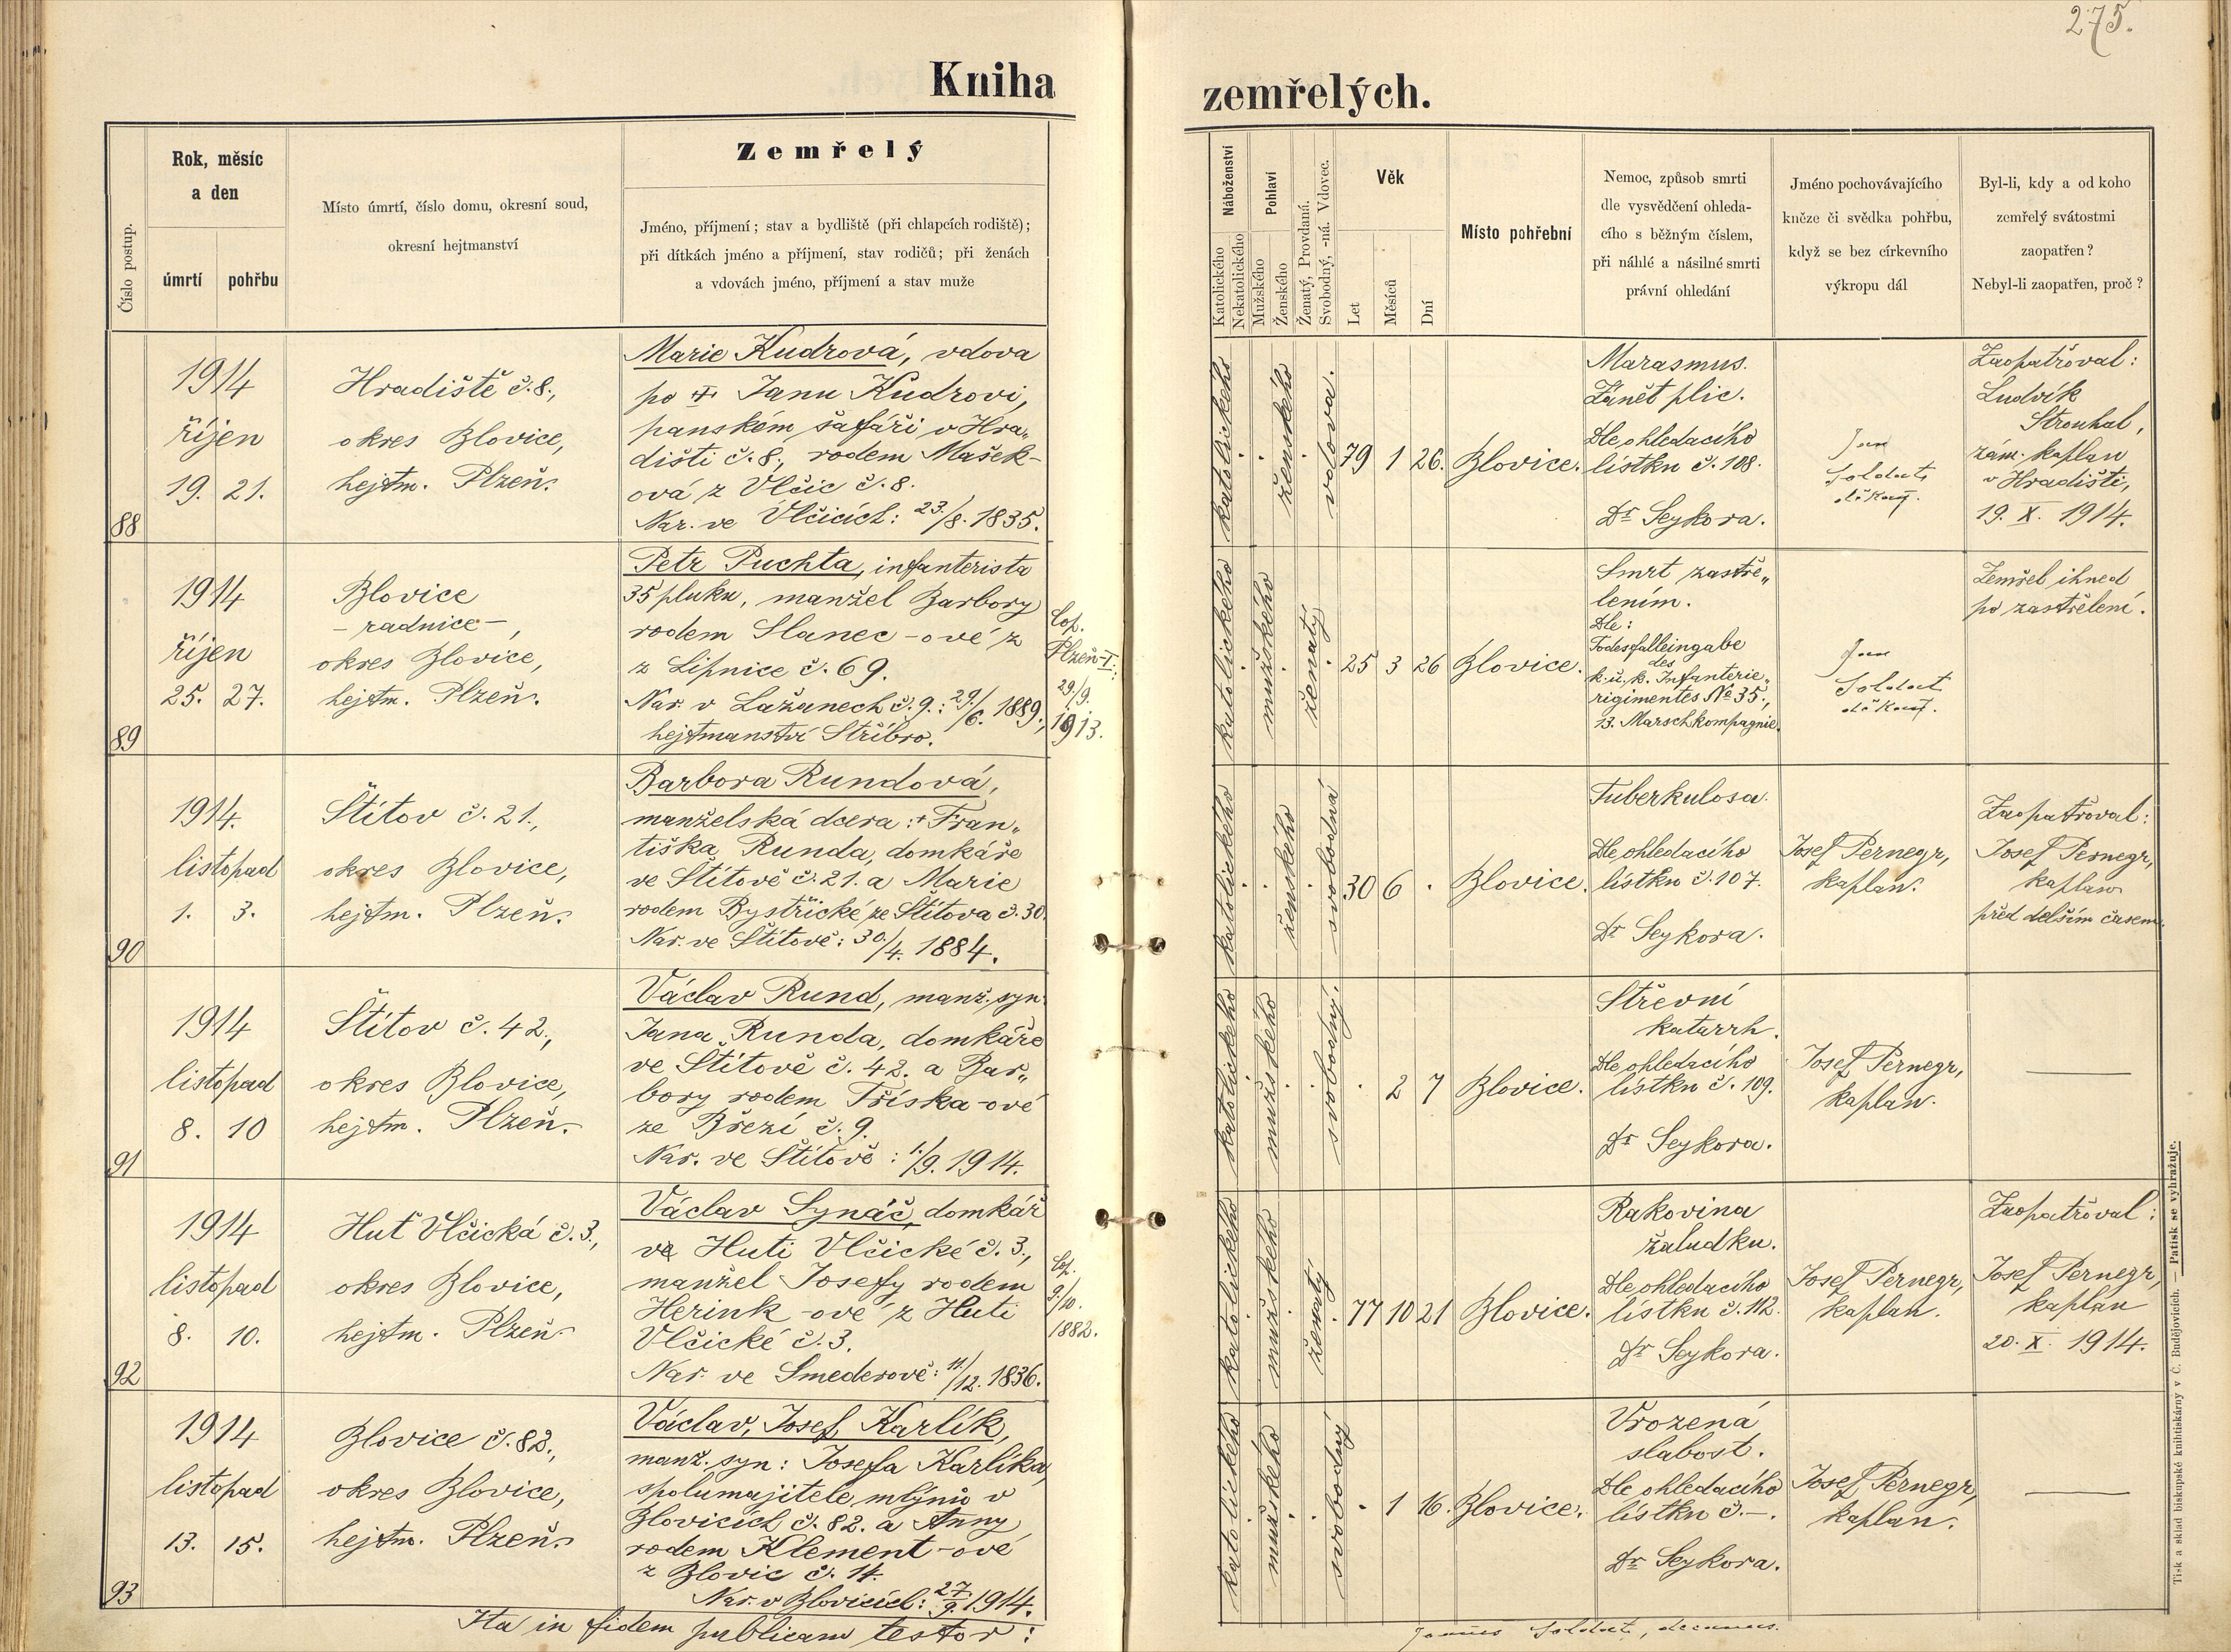 275.
Kniha
zemřelých.
Číslo postup.
Rok, měsíc
a den
úmrtí
pohřbu
Místo úmrtí, číslo domu, okresní soud,
okresní hejtmanství
Zemřelý
Jméno, příjmení; stav a bydliště (při chlapcích rodiště);
při dítkách jméno a příjmení, stav rodičů; při ženách
a vdovách jméno, příjmení a stav muže
Náboženství
Katolického
Nekatolického
Pohlaví
Mužského
Ženského
Ženatý, Provdaná.
Svobodný, -ná. Vdovec.
Věk
Let
Měsíců
Dní
Místo pohřební
Nemoc, způsob smrti
dle vysvědčení ohleda-
cího s běžným číslem,
při náhlé a násilné smrti
právní ohledání
Jméno pochovávajícího
kněze či svědka pohřbu,
když se bez církevního
výkropu dál
Byl-li, kdy a od koho
zemřelý svátostmi
zaopatřen?
Nebyl-li zaopatřen, proč?
88
1914
říjen
19. 21.
Hradiště č. 8.,
okres Blovice,
hejtm. Plzeň.
Marie Kudrová, vdova
po ‡ Janu Kudrovi,
panském šafáři v Hra„
dišti č. 8., rodem Mašek-
ová z Vlčic č. 8.
Nar. ve Vlčicích: 23./8. 1835.
katolického
ženského
vdova.
79 1 26.
Blovice.
Marasmus.
Zánět plic.
Dle ohledacího
lístku č. 108.
Dr Seykora.
Jan
Soldát
děkan.
Zaopatřoval:
Ludvík
Strouhal,
zám. kaplan
v Hradišti,
19. X. 1914.
89
1914
říjen
25. 27.
Blovice
- radnice -,
okres Blovice,
hejtm. Plzeň.
Petr Puchta, infanterista
35 pluku, manžel Barbory
rodem Slanec-ové z
z Lipnice č. 69.
Nar. v Lažanech č. 9.: 29./6. 1889.,
hejtmanství Stříbro.
Cop.
Plzeň-I.:
29./9.
1913.
katolického
mužského
ženatý
25 3 26
Blovice.
Smrt zastře„
lením.
Dle:
Todesfalleingabe
des
k. u. k. Infanterie„
rigimentes No 35.,
13. Marschkompagnie.
Jan
Soldát
děkan.
Zemřel ihned
po zastřelení.
90
1914.
listopad
1. 3.
Štítov č. 21.,
okres Blovice,
hejtm. Plzeň.
Barbora Rundová,
manželská dcera: + Fran„
tiška Runda, domkáře
ve Štítově č. 21. a Marie
rodem Bystřické ze Štítova č. 30.
Nar. ve Štítově: 30./4. 1884.
katolického
ženského
svobodná
30 6 .
Blovice.
Tuberkulosa.
Dle ohledacího
lístku č. 107.
Dr Seykora.
Josef Pernegr,
kaplan.
Zaopatřoval:
Josef Pernegr,
kaplan
před delším časem.
91
1914
listopad
8. 10
Štítov č. 42.,
okres Blovice,
hejtm. Plzeň.
Václav Rund, manž. syn
Jana Runda, domkáře
ve Štítově č. 42. a Bar„
bory rodem Tříska-ové
ze Březí č. 9.
Nar. ve Štítově: 1./9. 1914.
katolického
mužského
svobodný.
. 2 7
Blovice.
Střevní
katarrh.
Dle ohledacího
lístku č. 109.
Dr Seykora.
Josef Pernegr,
kaplan.
—
92
1914
listopad
8. 10.
Huť Vlčická č. 3.,
okres Blovice,
hejtm. Plzeň.
Václav Synáč, domkář
ve Huti Vlčické č. 3.,
manžel Josefy rodem
Herink-ové z Huti
Vlčické č. 3.
Nar. ve Smederově: 11./12. 1836.
Cop.
9./10.
1882.
katolického
mužského
ženatý
77 10 21
Blovice.
Rakovina
žaludku.
Dle ohledacího
lístku č. 112.
Dr Seykora.
Josef Pernegr,
kaplan.
Zaopatřoval:
Josef Pernegr,
kaplan
20. X. 1914.
93
1914
listopad
13. 15.
Blovice č. 82.,
okres Blovice,
hejtm. Plzeň.
Václav, Josef Karlík,
manž. syn: Josefa Karlíka,
spolumajitele mlýnů v
Blovicích č. 82. a Anny
rodem Klement-ové
z Blovic č. 14.
Nar. v Blovicích: 27./9. 1914.
katolického
mužského
svobodný
. 1 16.
Blovice.
Vrozená
slabost.
Dle ohledacího
lístku č. -.
Dr Seykora.
Josef Pernegr,
kaplan.
—
Ita in fidem publicam testor:
Joannes Soldát, decanus.
Tisk a sklad biskupské knihtiskárny v Č. Budějovicích. — Patisk se vyhražuje.